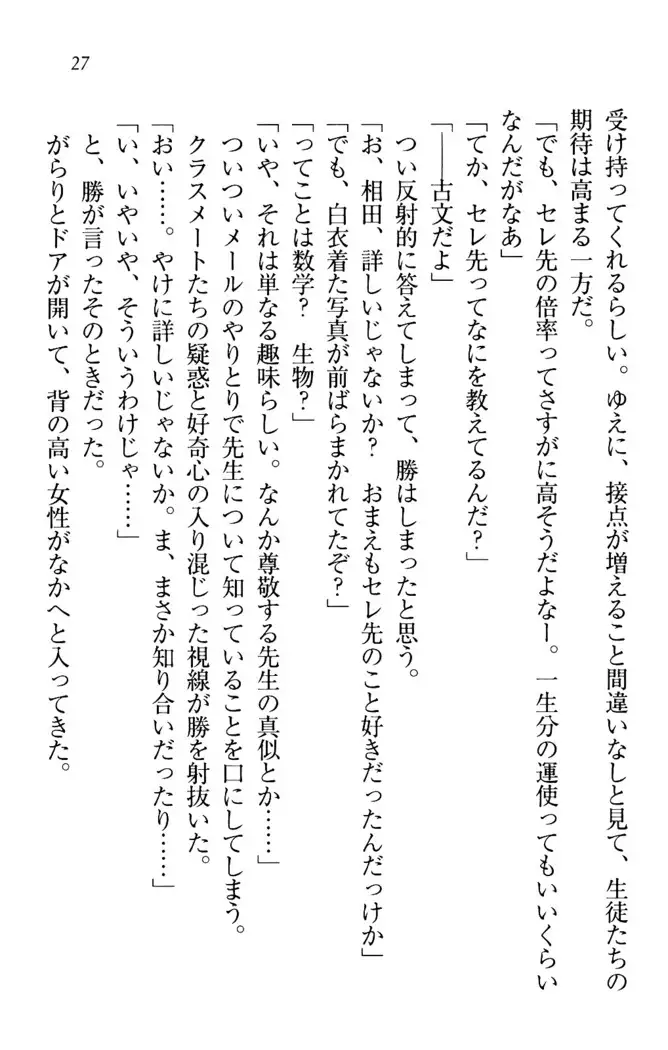 27
受け持ってくれるらしい。ゆえに、接点が増えること間違いなしと見て、生徒たちの
期待は高まる一方だ。
「でも、セレ先の倍率ってさすがに高そうだよなー。一生分の運使ってもいいくらい
なんだがなあ」
「てか、セレ先ってなにを教えてるんだ？」
「――古文だよ」
つい反射的に答えてしまって、勝はしまったと思う。
「お、相田、詳しいじゃないか？　おまえもセレ先のこと好きだったんだっけか」
「でも、白衣着た写真が前ばらまかれてたぞ？」
「ってことは数学？　生物？」
「いや、それは単なる趣味らしい。なんか尊敬する先生の真似とか……」
ついついメールのやりとりで先生について知っていることを口にしてしまう。
クラスメートたちの疑惑と好奇心の入り混じった視線が勝を射抜いた。
「おい……。やけに詳しいじゃないか。ま、まさか知り合いだったり……」
「い、いやいや、そういうわけじゃ……」
と、勝が言ったそのときだった。
がらりとドアが開いて、背の高い女性がなかへと入ってきた。